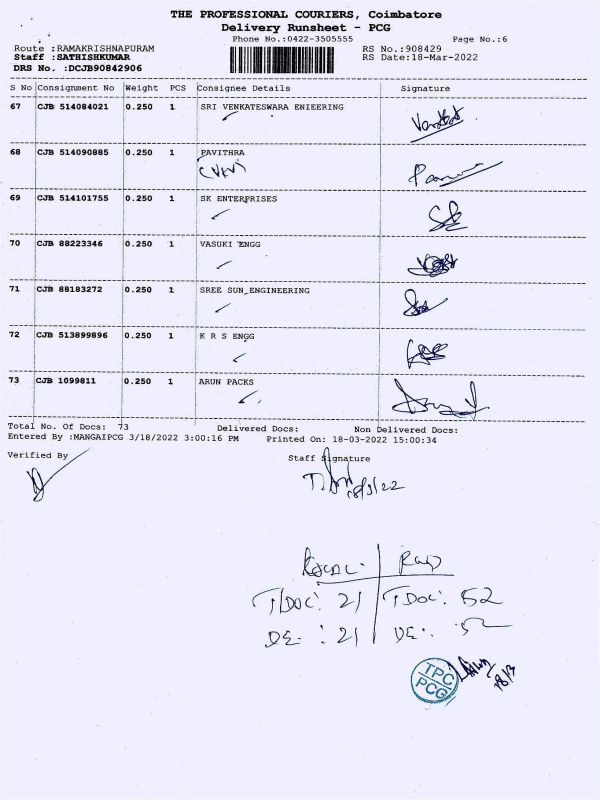 THE PROFESSIONAL COURIERS, Coimbatore
Delivery Runsheet - PCG
Phone No.:0422-3505555 Page No.:6
Route :RAMAKRISHNAPURAM RS No.:908429
Staff :SATHISHKUMAR RS Date:18-Mar-2022
DRS No. :DCJB90842906
S No Consignment No Weight PCS Consignee Details Signature
67 CJB 514084021 0.250 1 SRI VENKATESWARA ENIEERING
68 CJB 514090885 0.250 1 PAVITHRA
69 CJB 514101755 0.250 1 SK ENTERPRISES
70 CJB 88223346 0.250 1 VASUKI ENGG
71 CJB 88183272 0.250 1 SREE SUN ENGINEERING
72 CJB 513899896 0.250 1 K R S ENGG
73 CJB 1099811 0.250 1 ARUN PACKS
Total No. Of Docs: 73 Delivered Docs: Non Delivered Docs:
Entered By :MANGAIPCG 3/18/2022 3:00:16 PM Printed On: 18-03-2022 15:00:34
Verified By Staff Signature
18/3/22
T/DOC: 21 TDOC: 52
DE: 21 DE: 52
TPC
PCG
18/3